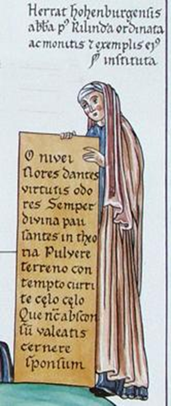 Herrat hohenburgensis
abba pꝰ Rilinda ordinata
ac monitis ⁊ exemplis eiꝰ
instituta
O nivei
flores dantes
virtutis odo
res Semper
divina pau
santes in theo
ria Pulvere
terreno con
tempto curri
te celo celo
Que nc̄ abscon
sū valeatis
cernere
sponsum